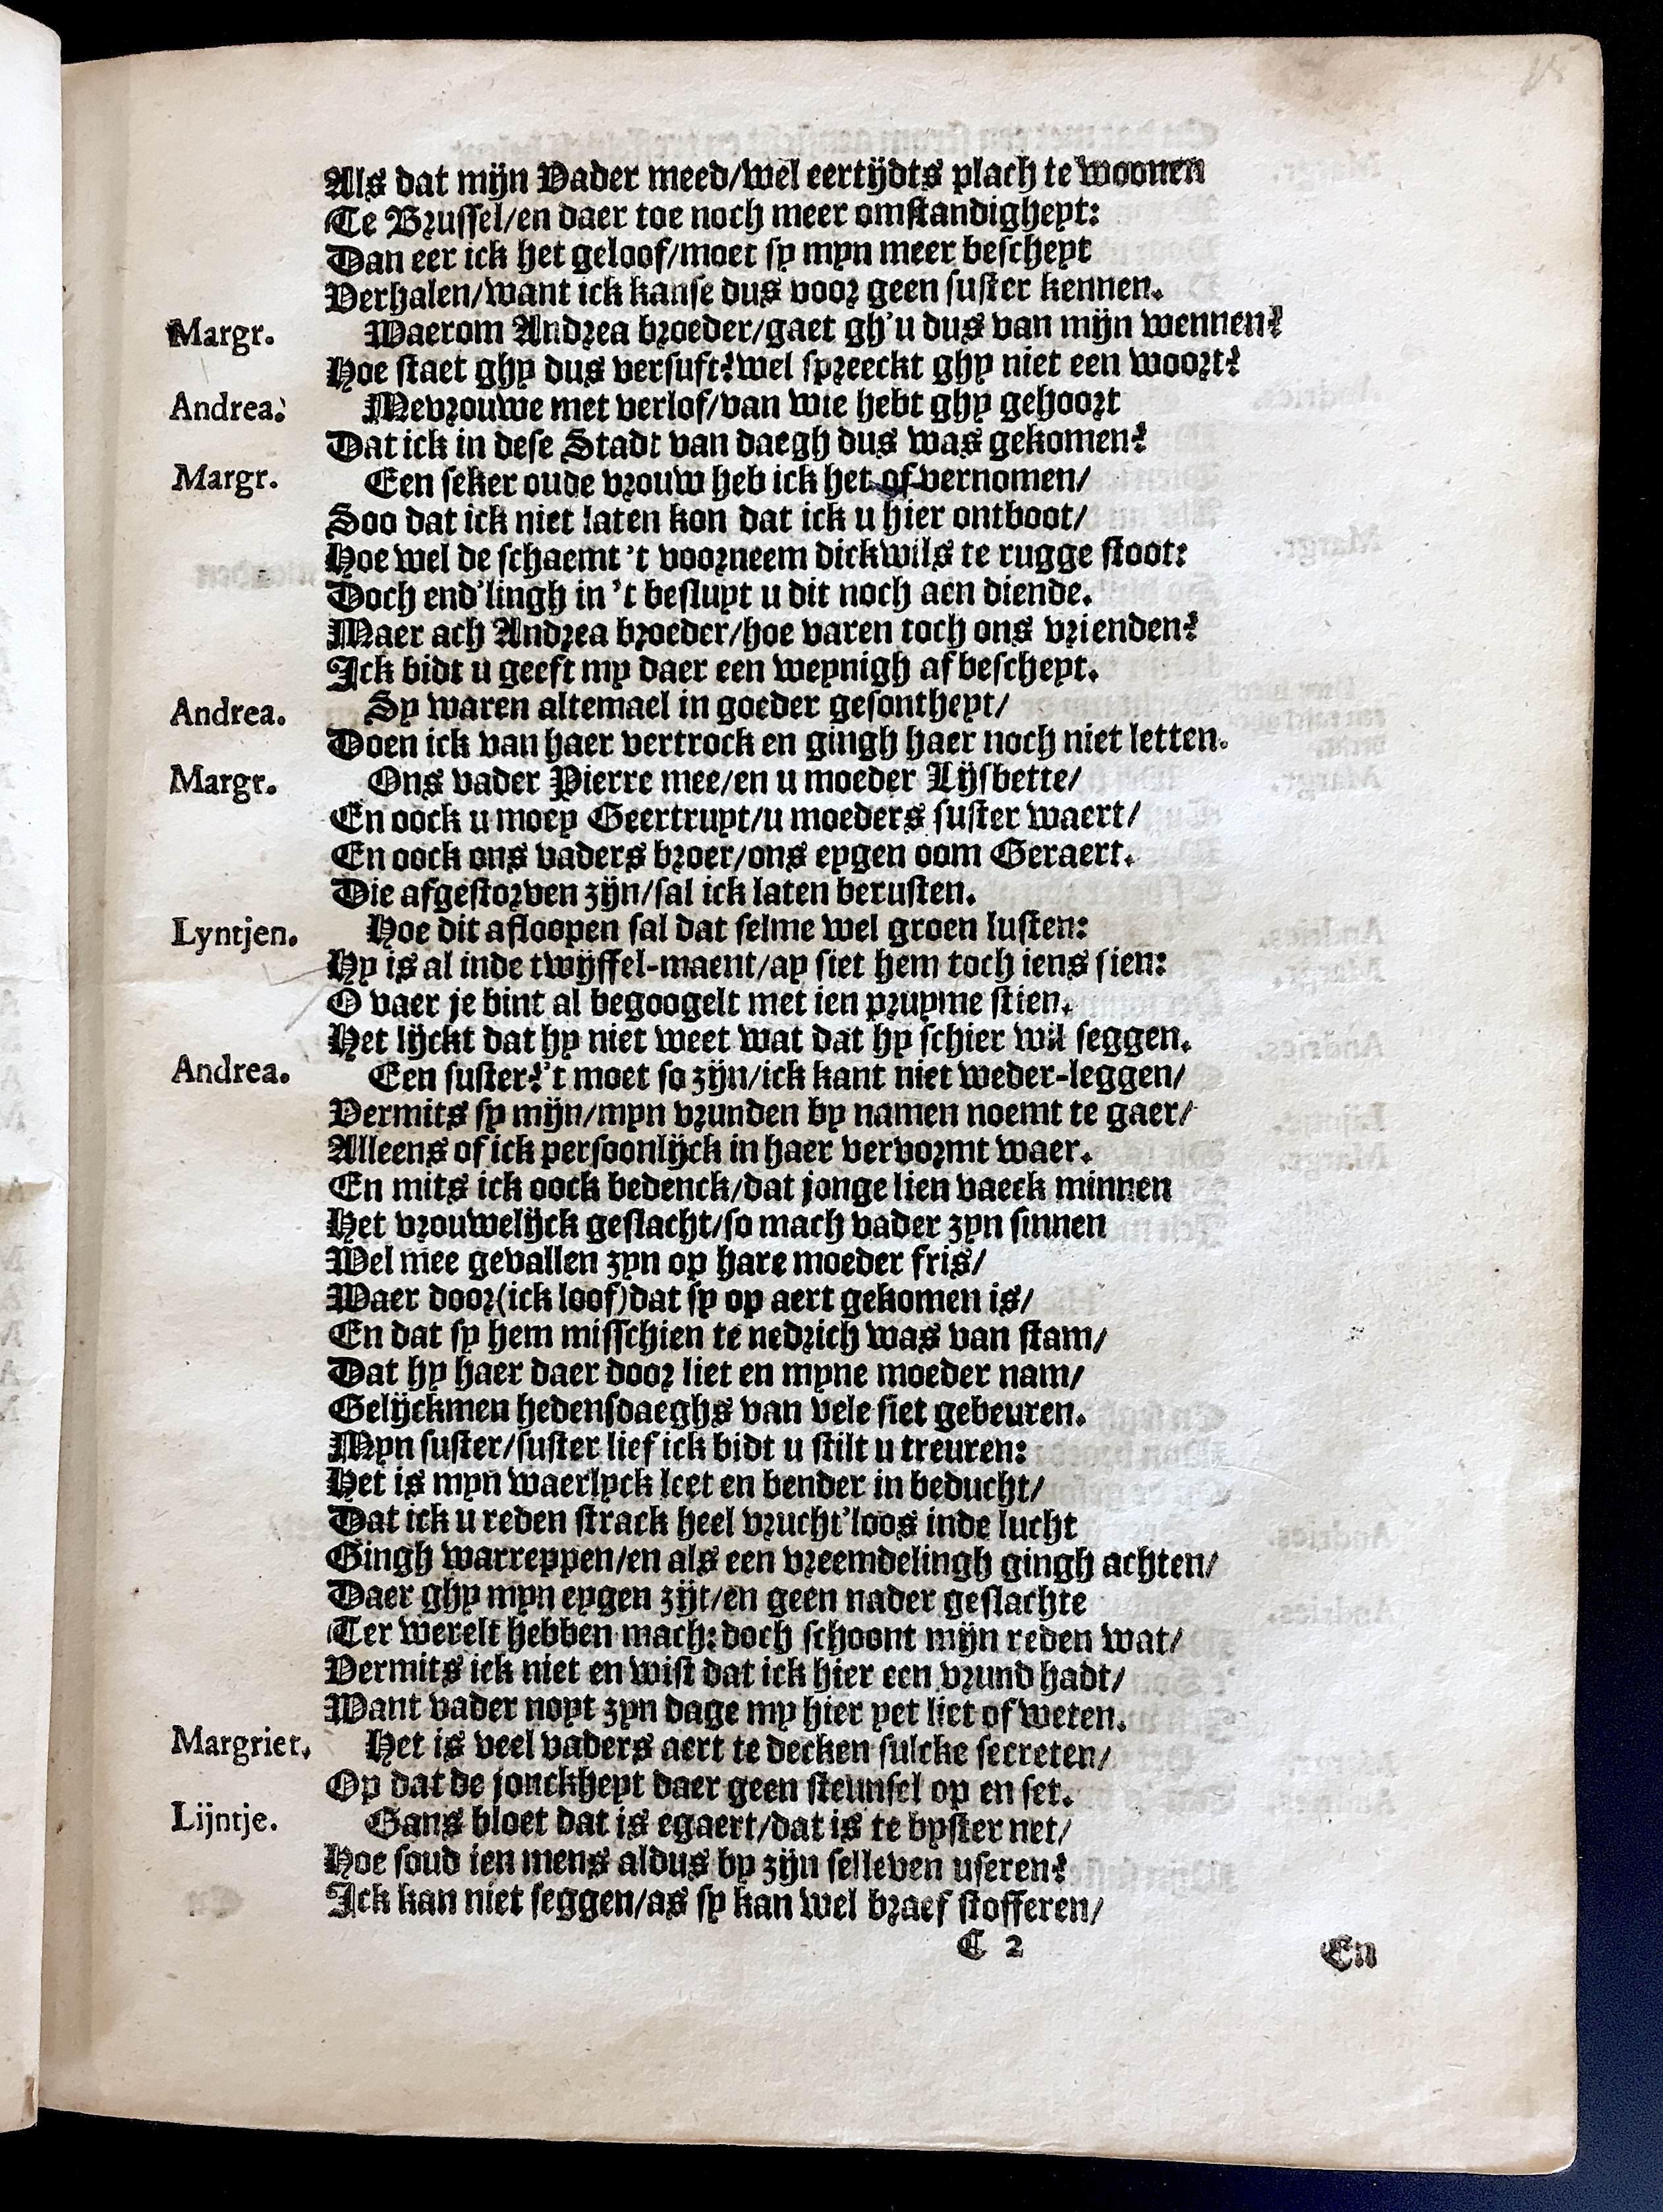 Als dat mijn Vader meed/wel eertijdts plach te woonen
Te Brussel/en daer toe noch meer omstandigheyt:
Dan eer ick het geloof/moet sy myn meer bescheyt
Verhalen/want ick kanse dus voor geen suster kennen.
Margr. Waerom Andrea broeder/gaet gh'u dus van mijn wennen?
Hoe staet ghy dus versuft? wel spreeckt ghy niet een woort?
Andrea. Mevrouwe met verlof/van wie hebt ghy gehoort
Dat ick in dese Stadt van daegh dus was gekomen?
Margr. Een seker oude vrouw heb ick het of vernomen/
Soo dat ick niet laten kon dat ick u hier ontboot/
Hoe wel de schaemt 't voorneem dickwils te rugge stoot:
Doch end'lingh in 't besluyt u dit noch aen diende.
Maer ach Andrea broeder/hoe varen toch ons vrienden?
Ick bidt u geeft my daer een weynigh af bescheyt.
Andrea. Sy waren altemael in goeder gesontheyt/
Doen ick van haer vertrock en gingh haer noch niet letten.
Margr. Ons vader Pierre mee/en u moeder Lijsbette/
En oock u moey Geertruyt/u moeders suster waert/
En oock ons vaders broer/ons eygen oom Geraert.
Die afgestorven zijn/sal ick laten berusten.
Lyntjen. Hoe dit afloopen sal dat selme wel groen lusten:
Hy is al inde twijffel-maent/ay siet hem toch iens sien:
O vaer je bint al begoogelt met ien pruyme stien.
Het lijckt dat hy niet weet wat dat hy schier wil seggen.
Andrea. Een suster? 't moet so zijn/ick kant niet weder-leggen/
Vermits sy mijn/myn vrunden by namen noemt te gaer/
Alleens of ick persoonlijck in haer vervormt waer.
En mits ick oock bedenck/dat jonge lien vaeck minnen
Het vrouwelijck geslacht/so mach vader zyn sinnen
Wel mee gevallen zyn op hare moeder fris/
Waer door(ick loof)dat sy op aert gekomen is/
En dat sy hem misschien te nedrich was van stam/
Dat hy haer daer door liet en myne moeder nam/
Gelijckmen hedensdaeghs van vele siet gebeuren.
Myn suster/suster lief ick bidt u stilt u treuren:
Het is myn waerlyck leet en bender in beducht/
Dat ick u reden strack heel vrucht'loos inde lucht
Gingh warreppen/en als een vreemdelingh gingh achten/
Daer ghy myn eygen zijt/en geen nader geslachte
Ter werelt hebben mach: doch schoont mijn reden wat/
Vermits ick niet en wist dat ick hier een vrund hadt/
Want vader noyt zyn dage my hier yet liet of weten.
Margriet. Het is veel vaders aert te decken sulcke secreten/
Op dat de jonckheyt daer geen steunsel op en set.
Lijntje. Gans bloet dat is egaert/dat is te byster net/
Hoe soud ien mens aldus by zijn selleven useren?
Ick kan niet seggen/as sy kan wel braef stofferen/
C 2
En